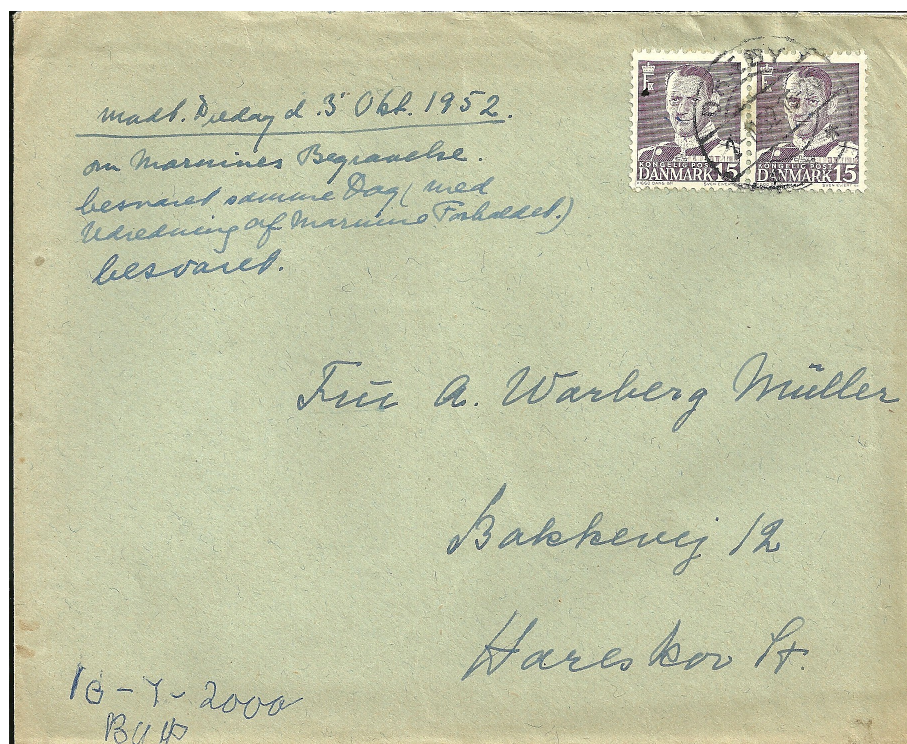 modt. Fredag d. 3' Okt. 1952.
om Marmines Begravelse.
besvaret samme Dag (med
Udredning af Marmine Forholdet.)
besvaret.
KONGELIG POST
DANMARK 15
KONGELIG POST
DANMARK 15
Fru A. Warberg Müller
Bakkevej 12
Hareskov St.
2000